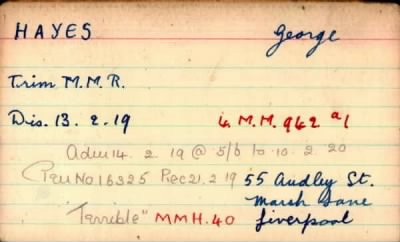 HAYES George
Trim M.M.R.
Dis. 13. 2. 19 M.M. 942 a/1
Adm 14. 2 19 @ 5/6 to 10. 2. 20
Pen No 16325 Rec 21. 2 19 55 Audley St.
Marsh Lane
"Terrible" MMH. 40 Liverpool